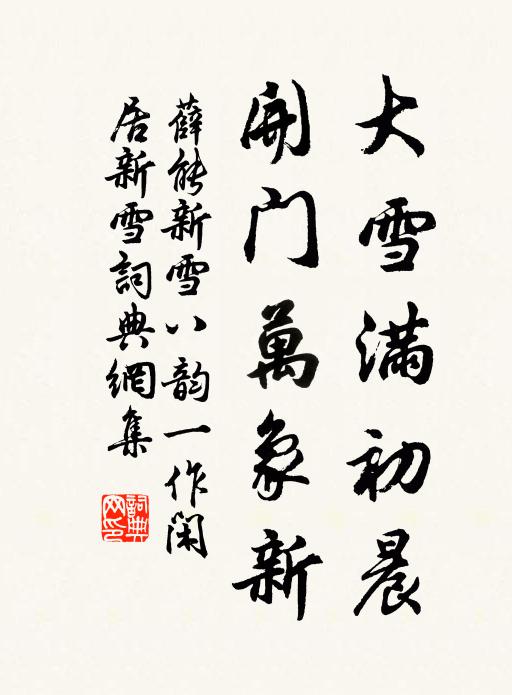 大雪滿初晨
開门萬象新
薛能新雪八韵一作閑
居新雪詞典網集
詞典
网印